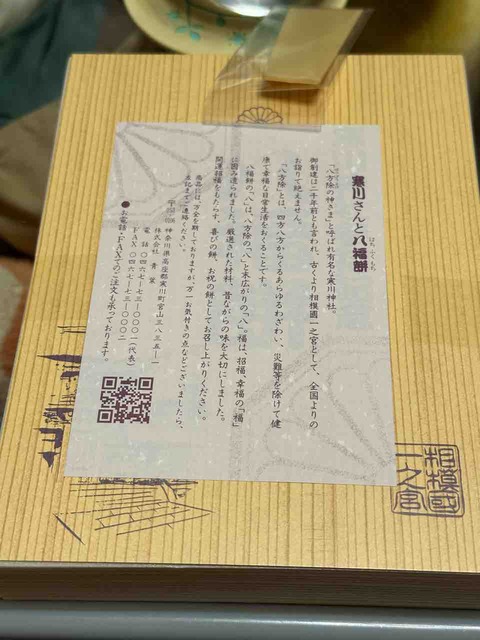 寒川さんと八福餅
はち ふくもち
「八方除の神さま」と呼ばれ有名な寒川神社。
御創建は二千年前とも言われ、古くより相模國一之宮として、全国よりの
お詣りで絶えません。
「八方除」とは、四方八方からくるあらゆるわざわい、災難等を除けて健
康で幸福な日常生活をおくることです。
八福餅の「八」は、八方除の「八」と末広がりの「八」。福は、招福、幸福の「福」
に因み造られました。厳選された材料、昔ながらの味を大切にしました。
開運招福をもたらす、喜びの餅、お祝の餅としてお召し上がりください。
商品には万全を期しておりますが、万一お気付きの点などございましたら、
左記までご連絡ください。
神奈川県高座郡寒川町宮山三八三五ー一
株式会社
電話 〇四六七ー七三ー〇〇〇一(代表)
FAX 〇四六七ー七三ー〇〇〇二
●お電話・FAXでのご注文も承っております。
相模國
一之宮